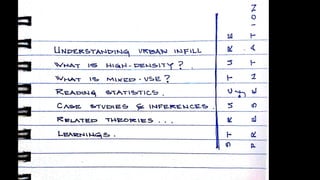 UNDERSTANDING URBAN INFILL
WHAT IS HIGH-DENSITY?
WHAT IS MIXED-USE?
READING STATISTICS.
CASE STUDIES & INFERENCES.
RELATED THEORIES...
LEARNINGS.
STRUCTURE
PRESENTATION